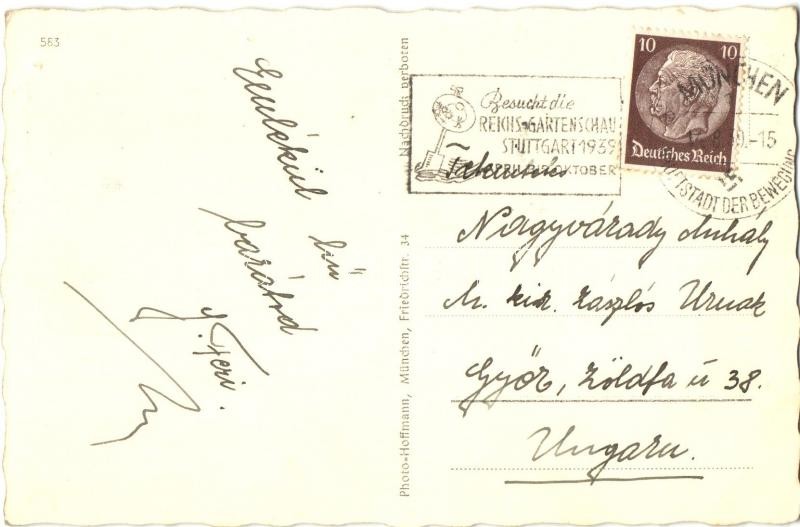 583
Emlékül
hű
barátod
J. Feri.
Nachdruck verboten
Photo-Hoffmann, München, Friedrichstr. 34
Besucht die
REICHS-GARTENSCHAU
STUTTGART 1939
APRIL OKTOBER
10 10
Deutsches Reich
MÜNCHEN
-15
HAUPTSTADT DER BEWEGUNG
Tekintetes
Nagyvárady Mihály
M. kir. zászlós Urnak
Győr, Zöldfa ú 38.
Ungarn.